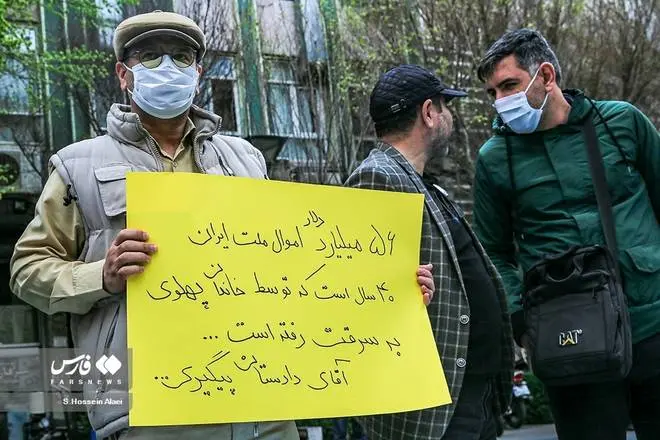 ۵۶ میلیارد دلار اموال ملت ایران
۴۰ سال است که توسط خاندان پهلوی
به سرقت رفته است ...
آقای دادستان پیگیری...
فارس
FARSNEWS
S.Hossein Alaei
CAT